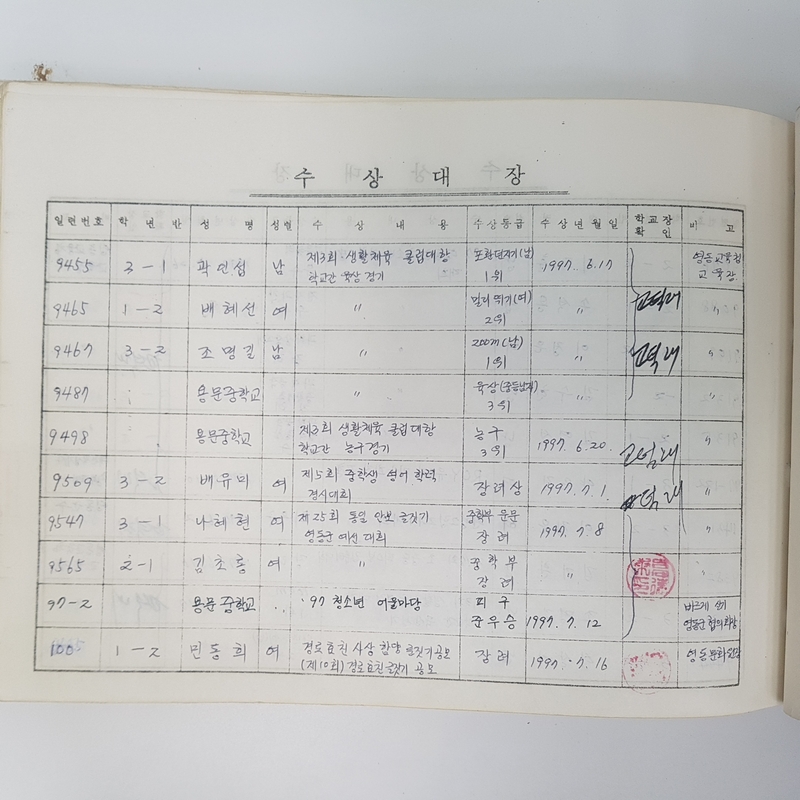 수 상 대 장
일련번호 학년반 성명 성별 수상내용 수상등급 수상년월일 학교장 확인 비고
9455 3-1 곽인섭 남 제3회 생활체육 클럽대항 학교간 육상경기 포환던지기(남) 1위 1997. 6.17 영동교육청 교육장
9465 1-2 배혜선 여 〃 멀리뛰기(여) 2위 〃 〃
9467 3-2 조명길 남 〃 200m(남) 1위 〃 〃
9487 용문중학교 〃 육상(중등남자) 3위 〃
9498 용문중학교 제3회 생활체육 클럽대항 학교간 농구경기 농구 3위 1997. 6.20. 〃
9509 3-2 배유미 여 제5회 중학생 영어 학력 경시대회 장려상 1997. 7.1. 〃
9547 3-1 나혜현 여 제25회 통일 안보 글짓기 영동군 예선대회 중학부 운문 장려 1997. 7.8 〃
9565 2-1 김초롱 여 〃 중학부 장려 〃
97-2 용문중학교 '97 청소년 어울마당 피구 준우승 1997. 7. 12 바르게 살기 영동군협의회장
100 1-2 민동희 여 경로효친 사상 함양 글짓기공모 (제10회) 경로효친글짓기 공모 장려 1997. 7. 16 영동문화원장